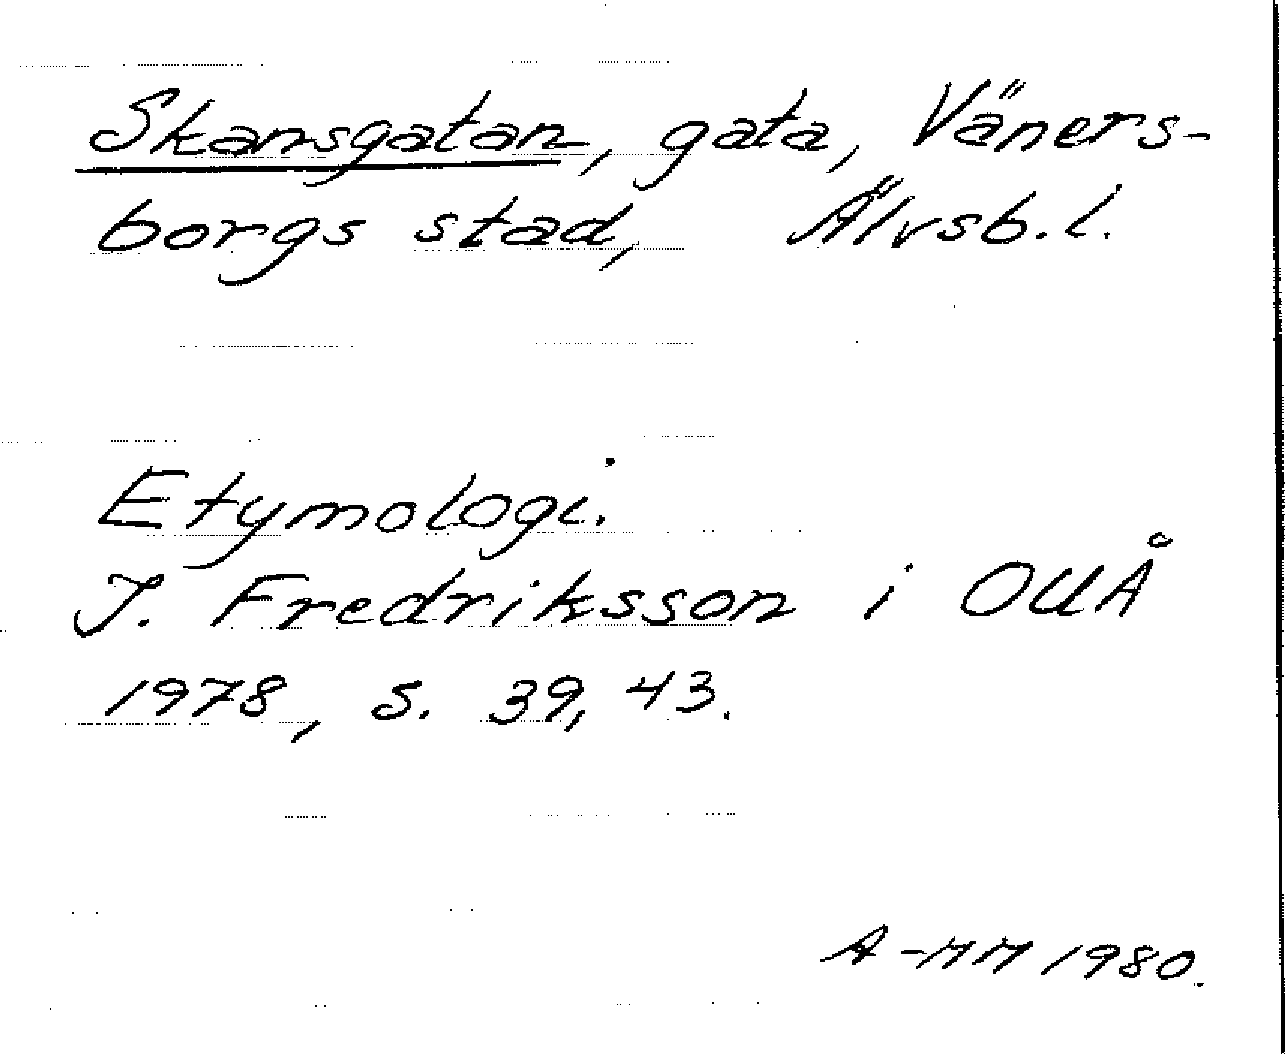 Skansgatan, gata, Väners-
borgs stad, Älvsb. l.
Etymologi.
J. Fredriksson i OUÅ
1978, s. 39, 43.
A-MM 1980.